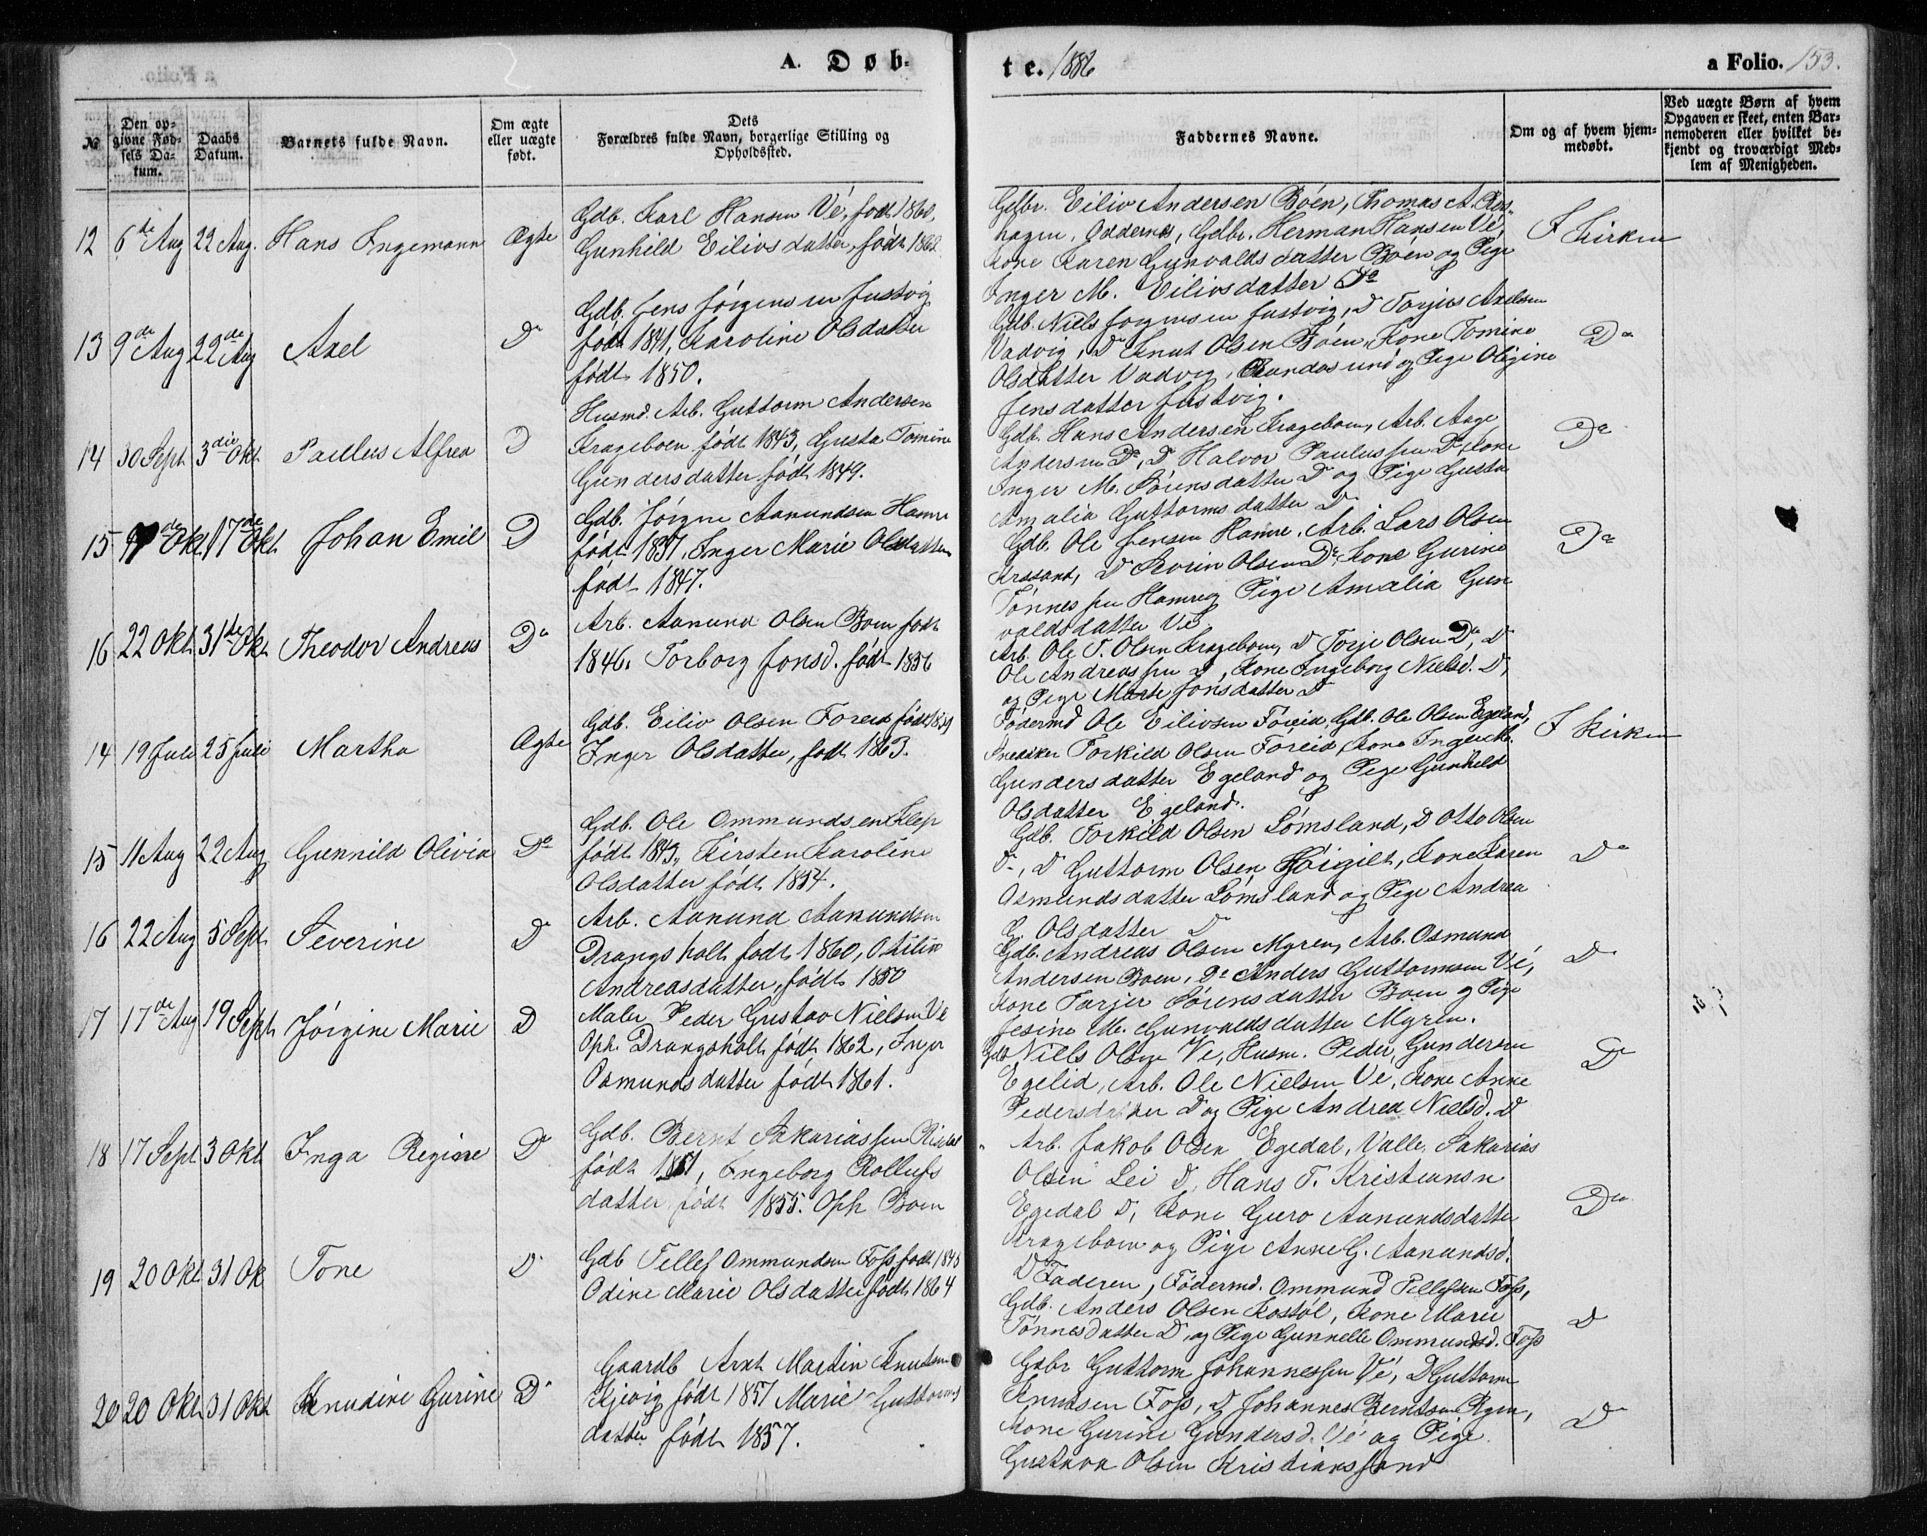 A. Døb-
te. 1886
a Folio. 153.
№
Den op-
givne Fød-
sels Da-
tum.
Daabs
Datum.
Barnets fulde Navn.
Om ægte
eller uægte
født.
Dets
Forældres fulde Navn, borgerlige Stilling og
Opholdssted.
Faddernes Navne.
Om og af hvem hjem-
medøbt.
Ved uægte Børn af hvem
Opgaven er skeet, enten Bar-
nemoderen eller hvilket be-
kjendt og troværdigt Med-
lem af Menigheden.
12 6te Aug 22 Aug. Hans Ingemann Ægte
Gdb. Karl Hansen Vé, født 1860,
Gunhild Eilivsdatter, født 1862
Gdbr. Eiliv Andersen Bóen, Thomas A. Ros-
hagen, Oddernes, Gdbr. Herman Hansen Vé,
Kone Karen Gunvaldsdatter Bóen og Pige
Inger M. Eilivsdatter Do
I Kirken
13 9de Aug 22de Aug Axel Do
Gdb. Jens Jórgensen Justvig
født 1841, Karoline Olsdatter
født 1850.
Gdb. Niels Jorgensen Justvig, D Torjus Axelsen
Vadvig, D Knut Olsen Bóen, Kone Tomine
Olsdatter Vadvig, Randesund og Pige Oligine
Jensdatter Justvig.
Do
14 30 Sept 3die Okt Paulus Alfred D
Husmd. Arb. Guttorm Andersen
Krageboen født 1843, Gusta Tomine
Gundersdatter født 1849.
Gdb. Hans Andersen Krageboen, Arb. Aage
Andersen Do, D Halvor Paulussen Do Kone
Inger M. Sórensdatter D og Pige Gusta
Amalia Guttormsdatter D
Do
15 de Okt 17de Okt Johan Emil D
Gdb. Jórgen Aanundsen Hamre
født 1851, Inger Marie Olsdatter
født 1847.
Gdb. Ole Jensen Hamre, Arb. Lars Olsen
Krssand, D Severin Olsen Do, Kone Gurine
Tónnessen Hamre og Pige Amalia Gun
valdsdatter Vé
Do
16 22 Okt 31de Okt Theodor Andreas Do
Arb. Aanund Olsen Boen født
1846. Torborg Jonsd. født 1856
Arb. Ole T. Olsen Krageboen, D Torje Olsen Do, D
Ole Andreassen D, Kone Ingeborg Nielsd. D,
og Pige Marte Jonsdatter D
14 19 Juli 25 Juli Martha Ægte
Gdb. Eiliv Olsen Foreid født 1859
Inger Olsdatter, født 1863.
Fódermd Ole Eilivsen Fóreid, Gdb. Ole Olsen Egeland,
Snedker Torkild Olsen Fóreid, Kone Inger M.
Gundersdatter Egeland og Pige Gunhild
Olsdatter Egeland.
I Kirken
15 11 Aug 22 Aug Gunnild Olivia Do
Gdb. Ole Ommundsen Klep
født 1843, Kirsten Karoline
Olsdatter født 1854.
Gdb. Torkild Olsen Lómsland, D Otto Olsen
D, D Guttorm Olsen Hóigilt, Kone Karen
Osmundsdatter Lómsland og Pige Andrea
G. Olsdatter D
Do
16 22 Aug 5 Sept Severine D
Arb. Aanund Aanundsen
Drangsholt født 1860, Otilie
Andreasdatter, født 1850
Gdb. Andreas Olsen Myren, Arb. Osmund
Andersen Boen, Do Anders Guttormsen Vé,
Kone Tarjer Sórensdatter Boen og Pige
Jesine M. Gunvaldsdatter Myren.
D
17 17de Aug 19 Sept Jórgine Marie D
Maler Peder Gustav Nielsen Vé
Oph. Drangsholt født 1862, Inger
Osmundsdatter født 1861.
Gdb Niels Olsen Vé, Husm. Peder Gundersen
Egelid, Arb. Ole Nielsen Vé, Kone Anne
Pedersdatter D og Pige Andrea Nielsd. D
D
18 17 Sept 3 Okt Inga Regine D
Gdb. Bernt Sakariassen
født 1851, Ingeborg Rollufs
datter født 1855. Oph Boen
Arb. Jakob Olsen Egedal, Valle, Sakarias
Olsen Lei D, Hans T. Kristiansen
Egedal D, Kone Guro Aanundsdatter
Krageboen og Pige Anne G. Aanundsd.
D
Do
19 20 Okt 31 Ok Tone D
Gdb Tellef Ommundsen Foss født 1848
Odine Marie Olsdatter født 1864
Faderen, Fódermd. Ommund Tellefsen Foss,
Gdb. Anders Olsen Kostól, Kone Marie
Tónnesdatter D, og Pige Gunnelle Ommundsd. Foss
D
20 20 Okt 31 Okt Knudine Gurine D
Gaardb Arnt Martin Knutsen
Kjevig født 1851 Marie Guttorms
datter født 1857.
Gdbr Guttorm Johannessen Vé, D Guttorm
Knutsen Foss, D Johannes Berntsen Ryen,
Kone Gurine Gundersd. Vé og Pige
Gustava Olsen Kristianssand
D